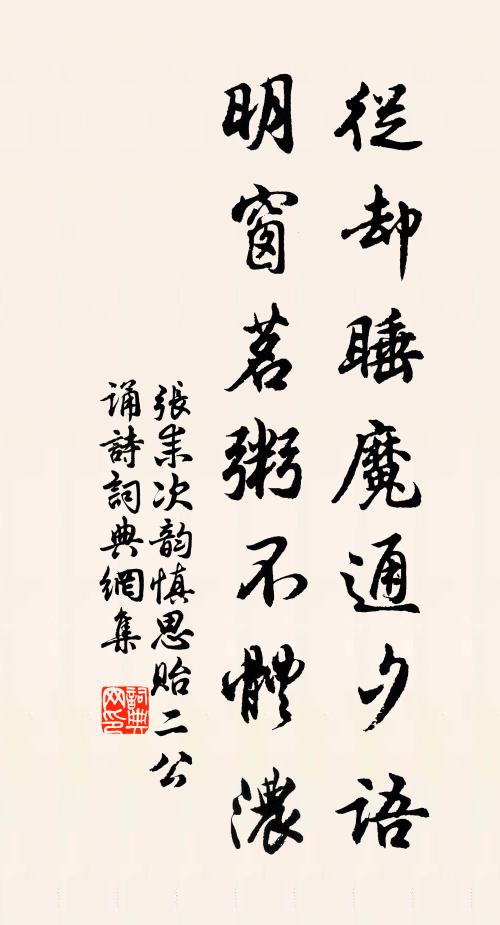 從却睡魔通夕語
明窗茗粥不體濃
張耒次韵慎思貽二公
誦詩詞典網集
詞典网印